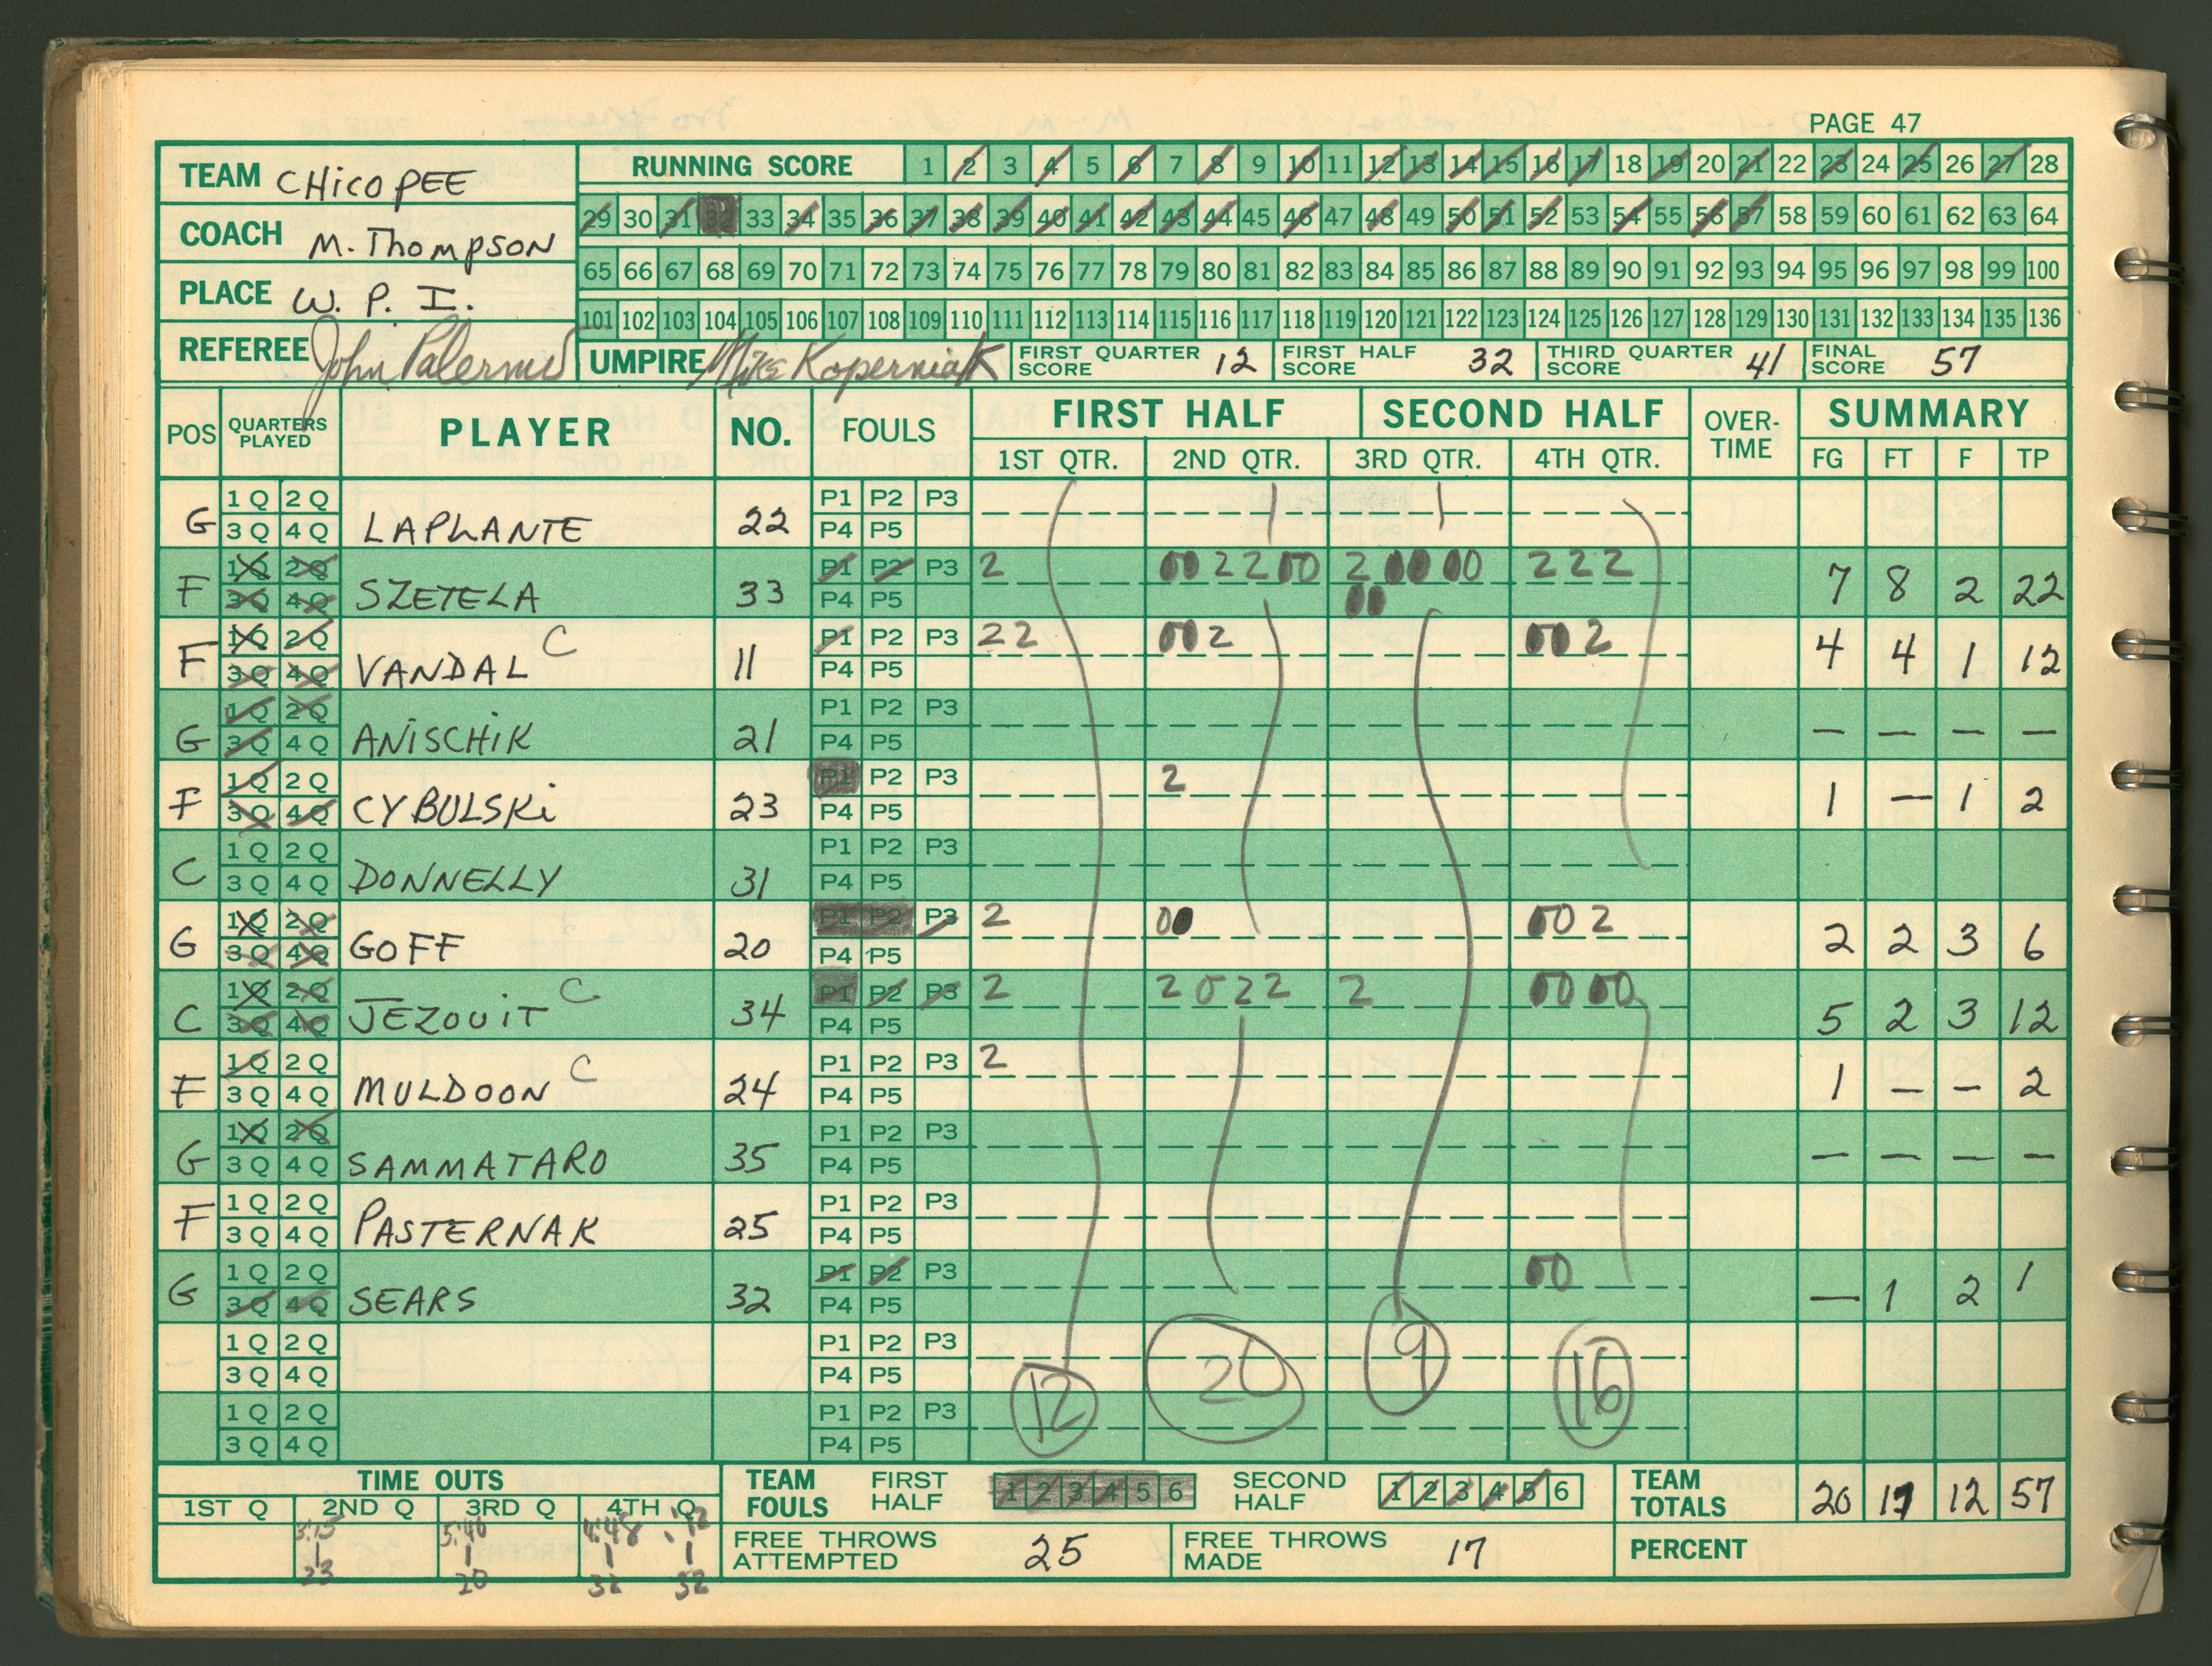 PAGE 47
TEAM CHicoPEE
RUNNING SCORE 1 2 3 4 5 6 7 8 9 10 11 12 13 14 15 16 17 18 19 20 21 22 23 24 25 26 27 28
29 30 31 32 33 34 35 36 37 38 39 40 41 42 43 44 45 46 47 48 49 50 51 52 53 54 55 56 57 58 59 60 61 62 63 64
COACH M. Thompson
65 66 67 68 69 70 71 72 73 74 75 76 77 78 79 80 81 82 83 84 85 86 87 88 89 90 91 92 93 94 95 96 97 98 99 100
PLACE W. P. I.
101 102 103 104 105 106 107 108 109 110 111 112 113 114 115 116 117 118 119 120 121 122 123 124 125 126 127 128 129 130 131 132 133 134 135 136
REFEREE John Palermo UMPIRE Mike Koperniak FIRST QUARTER SCORE 12 FIRST HALF SCORE 32 THIRD QUARTER SCORE 41 FINAL SCORE 57
POS QUARTERS PLAYED PLAYER NO. FOULS FIRST HALF SECOND HALF OVER-TIME SUMMARY
1ST QTR. 2ND QTR. 3RD QTR. 4TH QTR. FG FT F TP
G 1Q 2Q 3Q 4Q LAPLANTE 22 P1 P2 P3 P4 P5
F 1Q 2Q 3Q 4Q SZETELA 33 P1 P2 P3 P4 P5 2 00 2 2 00 2 00 00 00 2 2 2 7 8 2 22
F 1Q 2Q 3Q 4Q VANDAL C 11 P1 P2 P3 P4 P5 2 2 00 2 00 2 4 4 1 12
G 1Q 2Q 3Q 4Q ANiSCHiK 21 P1 P2 P3 P4 P5 — — — —
F 1Q 2Q 3Q 4Q CYBULSKi 23 P1 P2 P3 P4 P5 2 1 — 1 2
C 1Q 2Q 3Q 4Q DONNELLY 31 P1 P2 P3 P4 P5
G 1Q 2Q 3Q 4Q GOFF 20 P1 P2 P3 P4 P5 2 00 00 2 2 2 3 6
C 1Q 2Q 3Q 4Q JEZOUiT C 34 P1 P2 P3 P4 P5 2 2 0 2 2 2 00 00 5 2 3 12
F 1Q 2Q 3Q 4Q MULDOON C 24 P1 P2 P3 P4 P5 2 1 — — 2
G 1Q 2Q 3Q 4Q SAMMATARO 35 P1 P2 P3 P4 P5 — — — —
F 1Q 2Q 3Q 4Q PASTERNAK 25 P1 P2 P3 P4 P5
G 1Q 2Q 3Q 4Q SEARS 32 P1 P2 P3 P4 P5 00 — 1 2 1
1Q 2Q 3Q 4Q P1 P2 P3 P4 P5
1Q 2Q 3Q 4Q P1 P2 P3 P4 P5
12 20 9 16
TIME OUTS
1ST Q 2ND Q 3RD Q 4TH Q
3:15 5:46 4:48 :42
1 1 1 1
23 20 32 32
TEAM FOULS FIRST HALF 1 2 3 4 5 6 SECOND HALF 1 2 3 4 5 6 TEAM TOTALS 20 17 12 57
FREE THROWS ATTEMPTED 25 FREE THROWS MADE 17 PERCENT